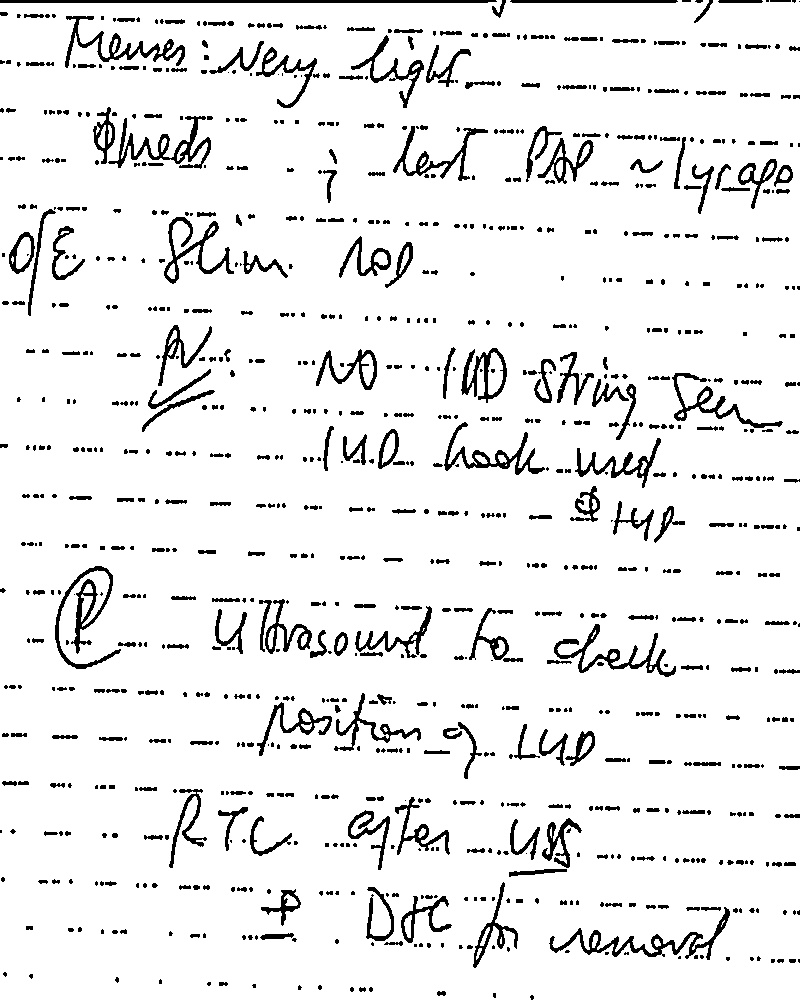 Menses: Very light.
Φmeds ; last PAP ~ 1yr ago
O/E Slim NAD.
PV: NO IUD string seen
IUD hook used
Φ IUD
Ⓟ Ultrasound to check
position of IUD
RTC after USS
± D&C for removal.